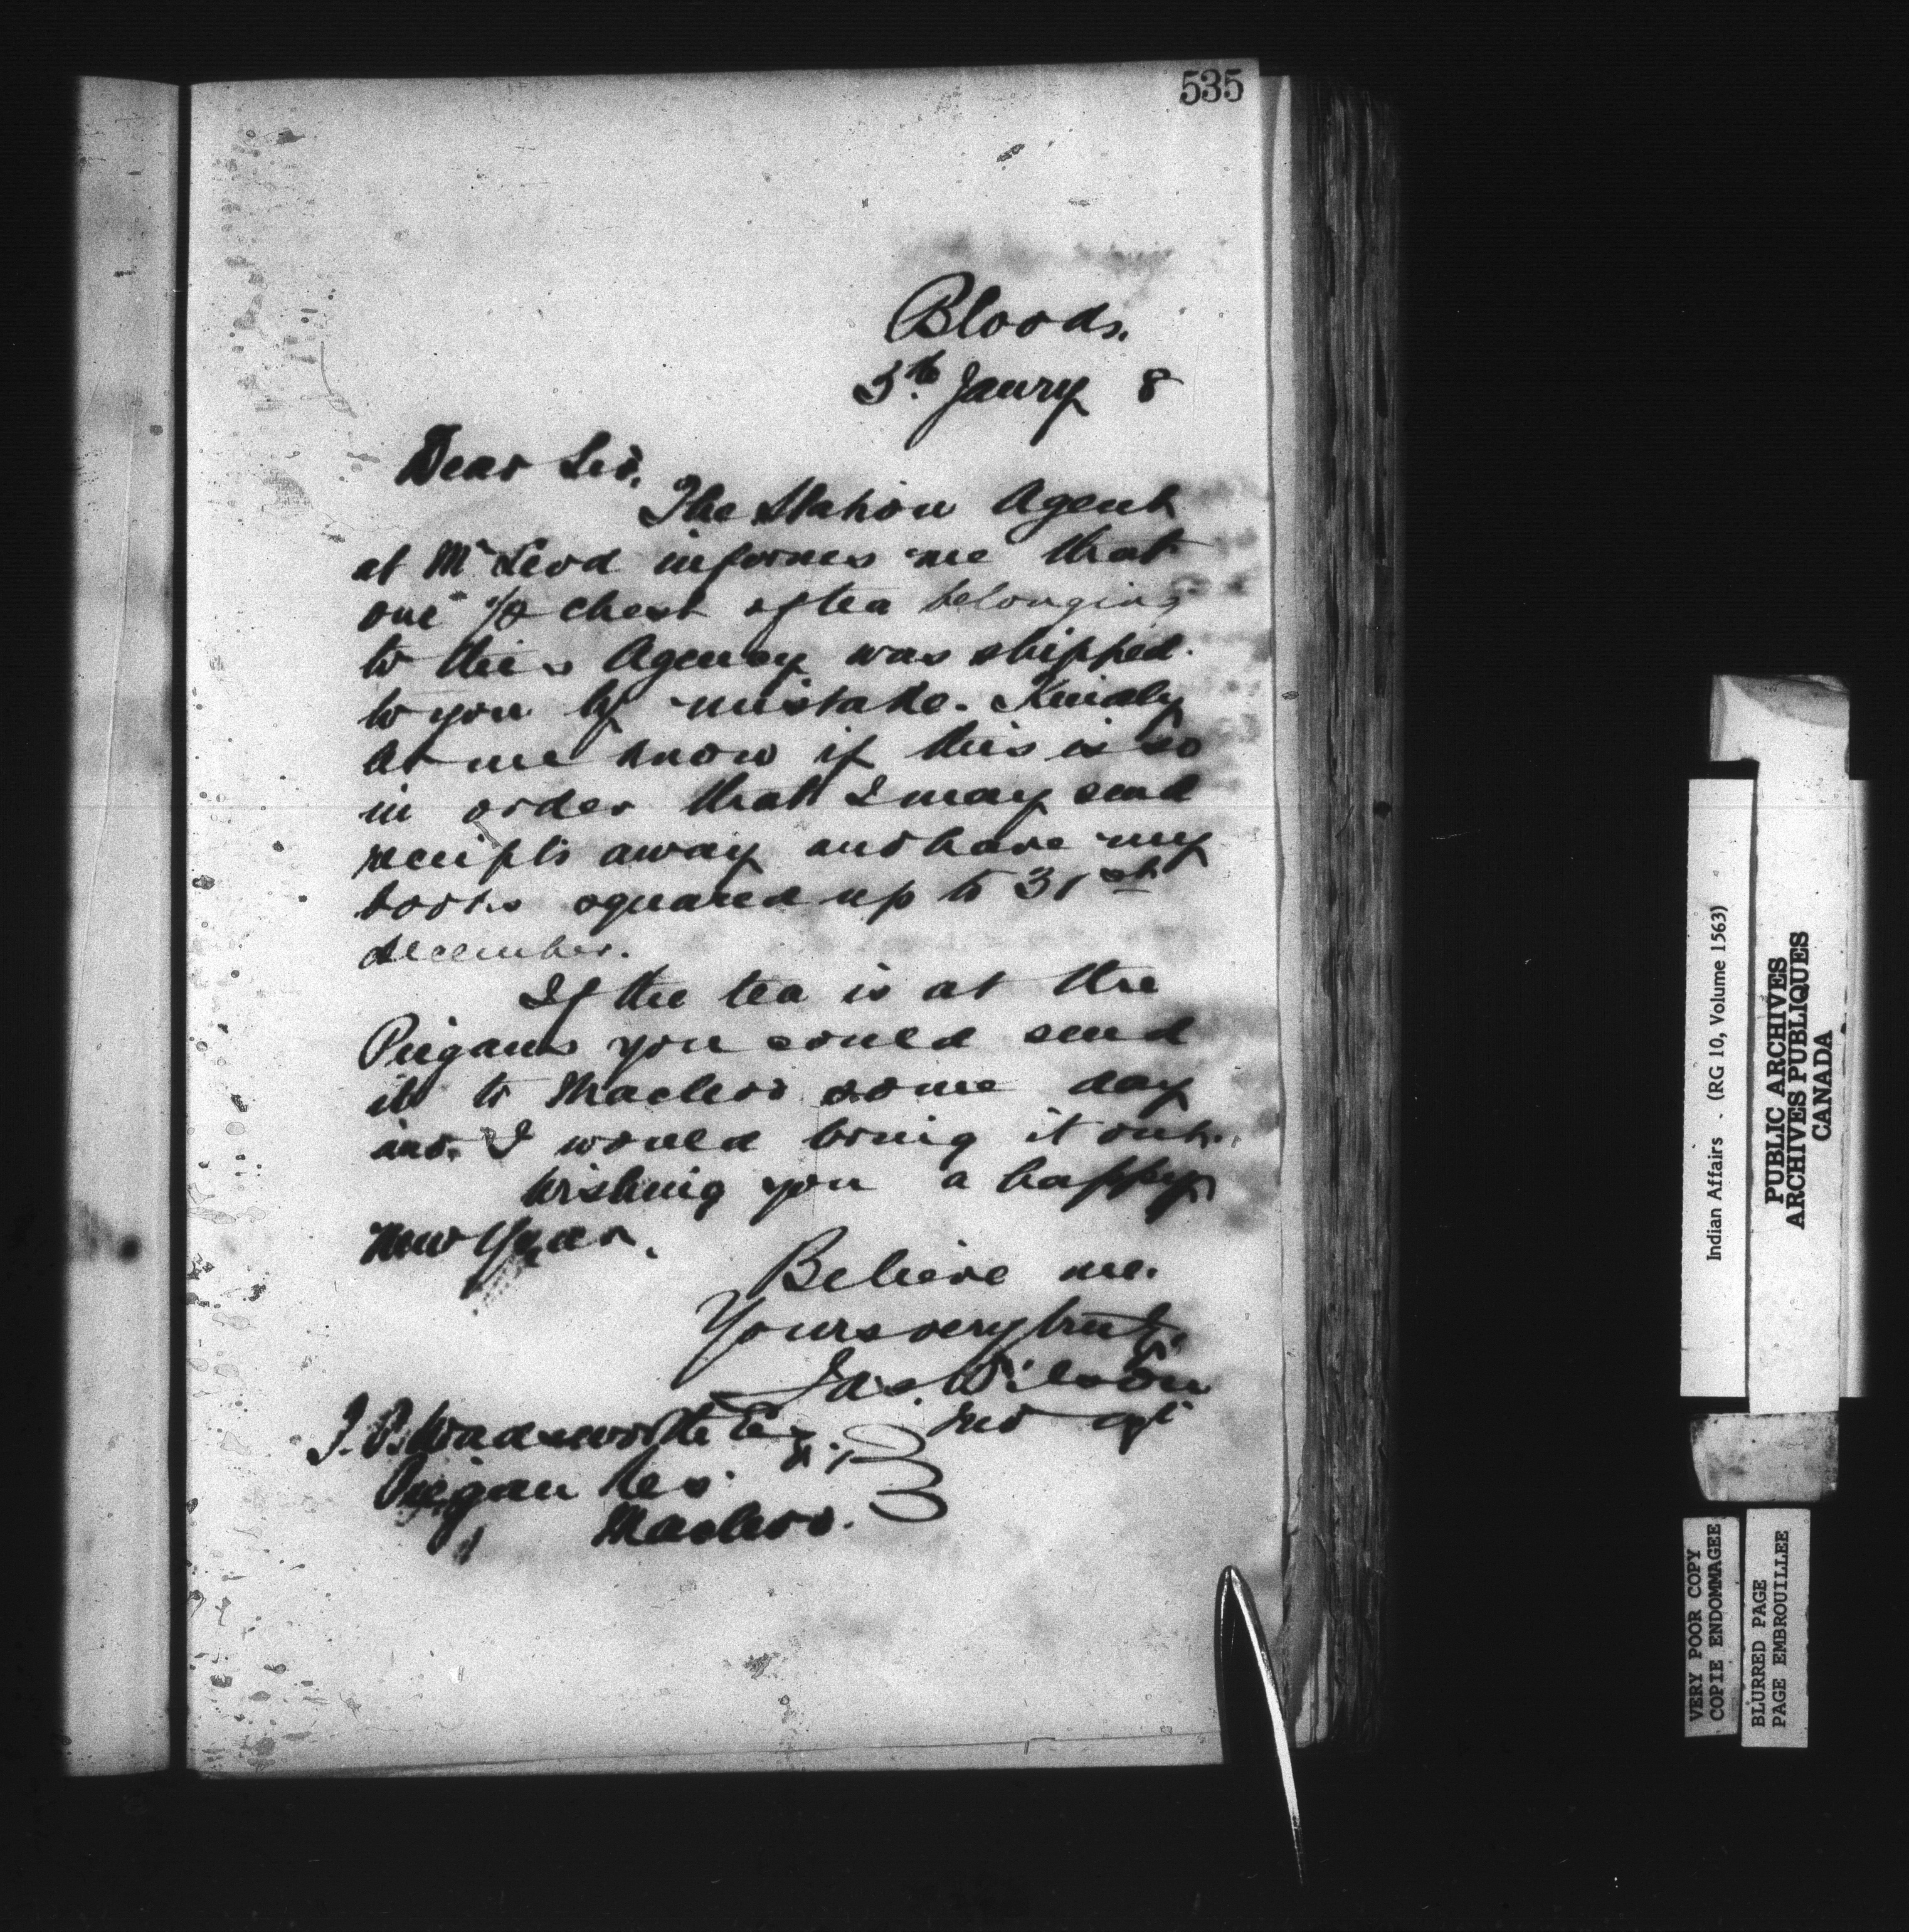 535
Bloods.
5th Janry 8
Dear Sir,
The Station Agent
at McLeod informs me that
one ½ chest of tea belonging
to this Agency was shipped
to you by mistake. Kindly
let me know if this is so
in order that I may send
receipts away and have my
books squared up to 31st
december.
If the tea is at the
Piegans you could send
it to Macleod some day
and I would bring it out.
Wishing you a happy
New Year.
Believe me.
Yours very truly
Jas. Wilson
Ind Agt
J. P. Wadsworth Esq
Piegan Res
Macleod.
Indian Affairs - (RG 10, Volume 1563)
PUBLIC ARCHIVES
ARCHIVES PUBLIQUES
CANADA
VERY POOR COPY
COPIE ENDOMMAGEE
BLURRED PAGE
PAGE EMBROUILLEE